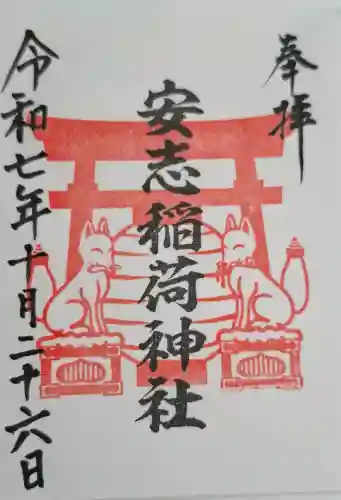 奉拝
安志稲荷神社
令和七年十月二十六日